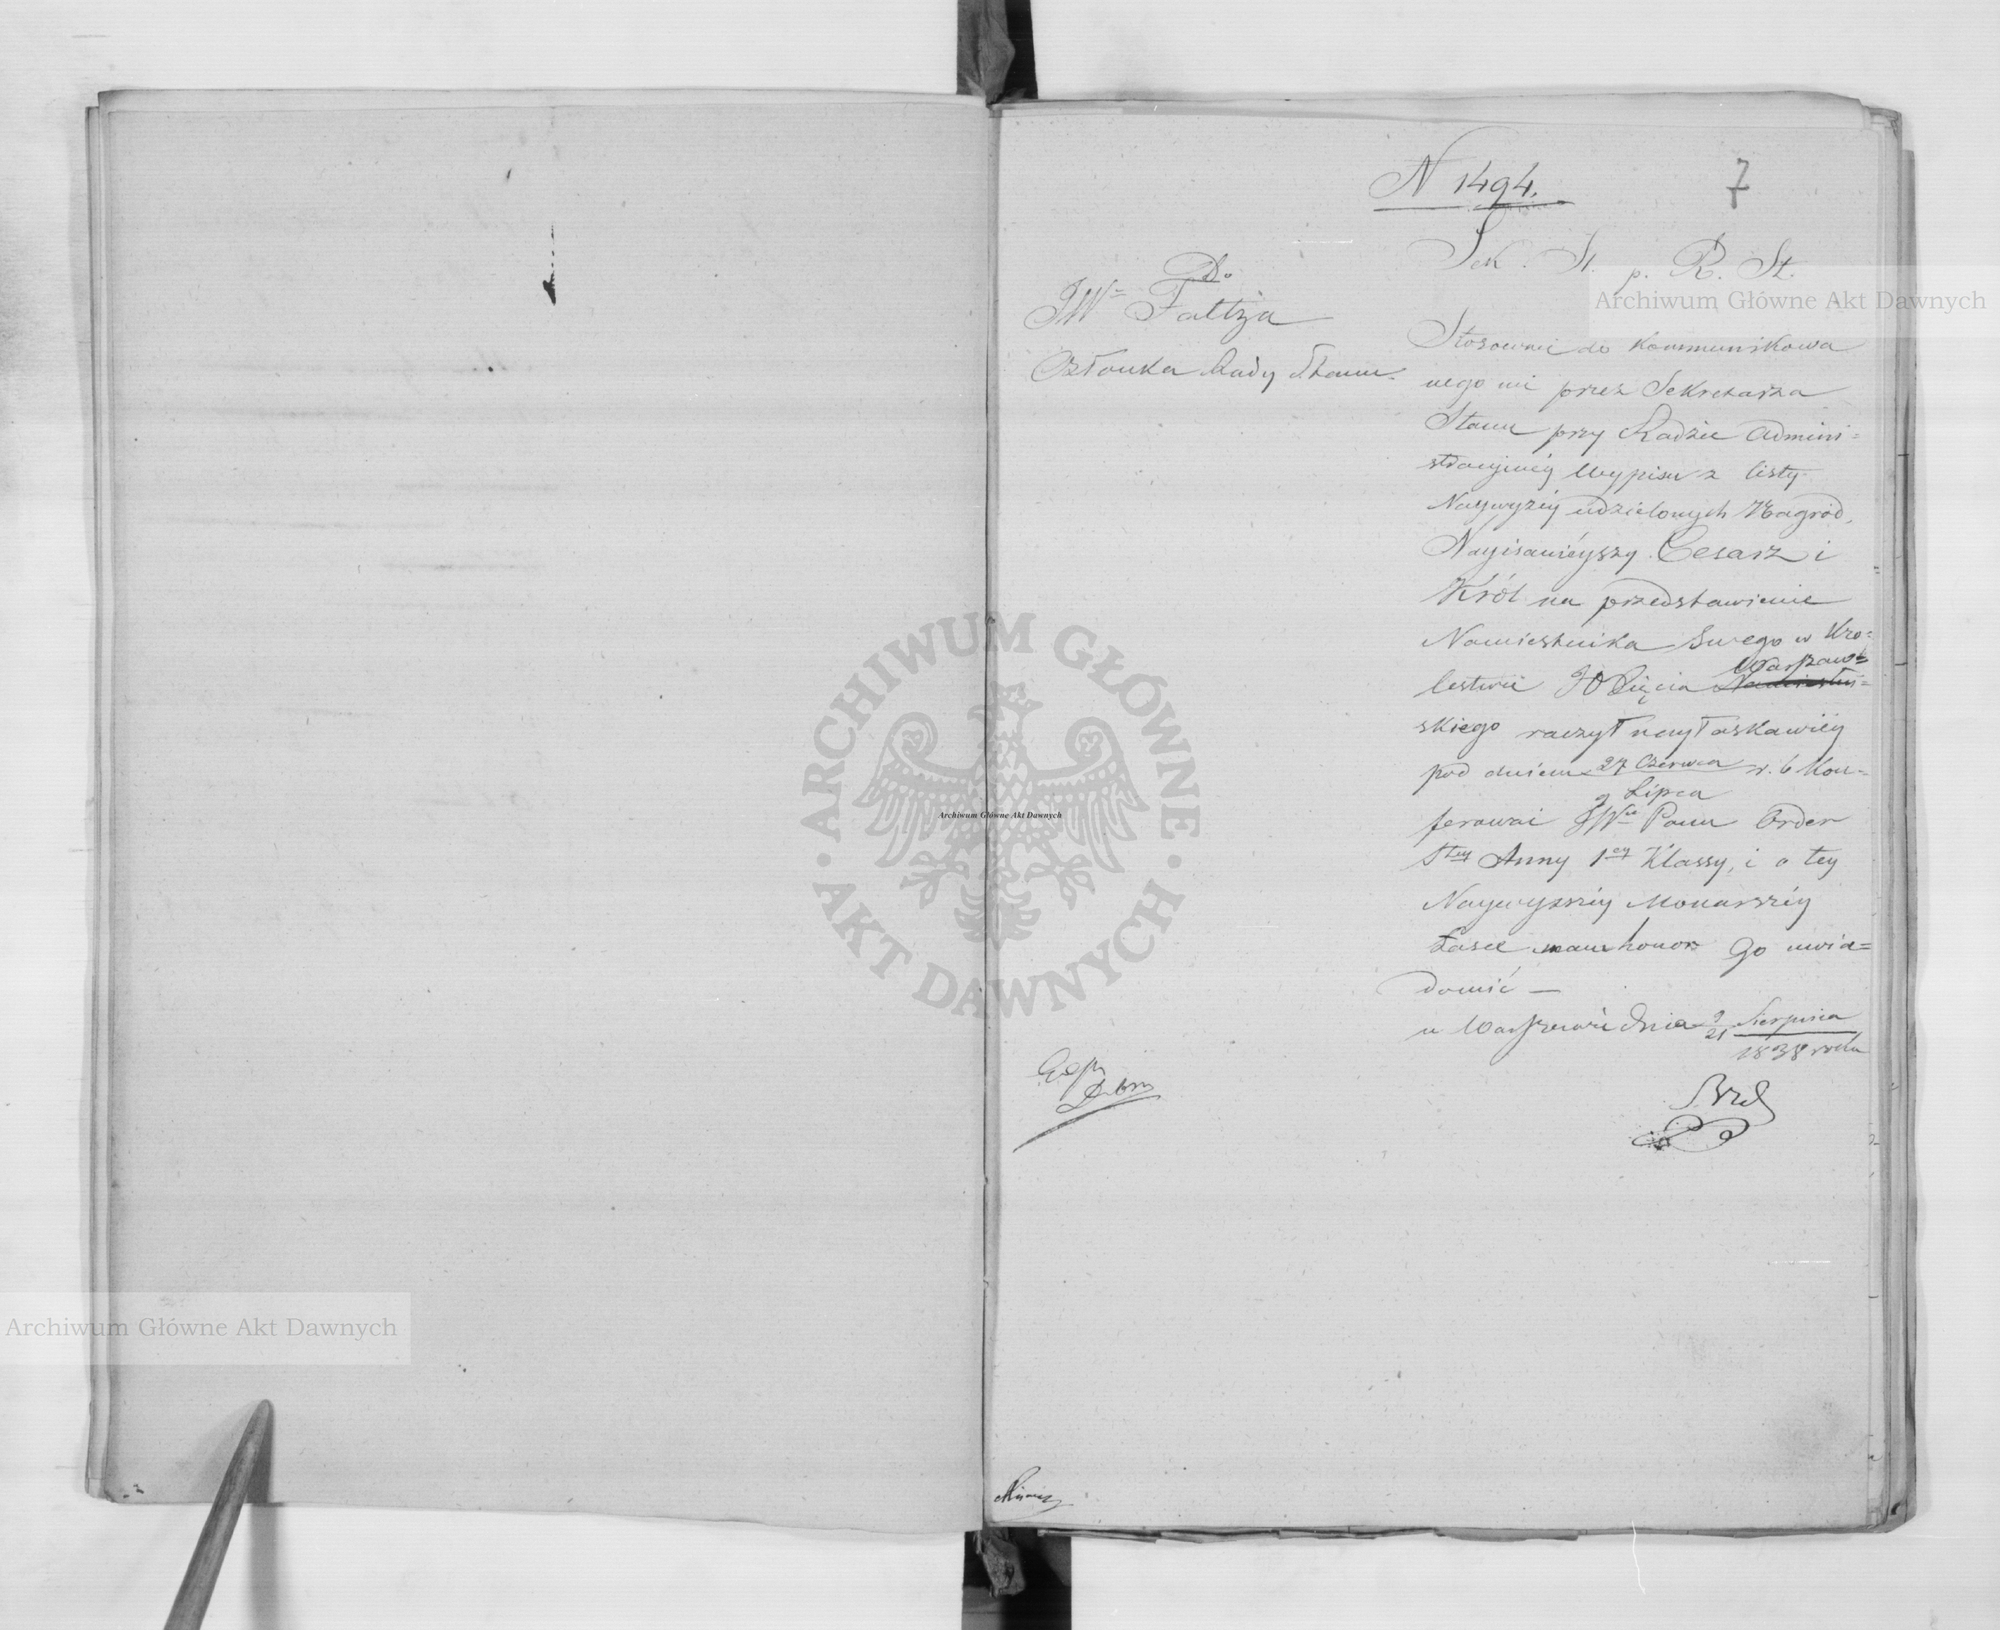 N 1494.
7
Sek. St. p. R. St.
Archiwum Główne Akt Dawnych
Do
JW= Faltza
Członka Rady Stanu.
Stosownie do kommunikowa
nego mi przez Sekretarza
Stanu przy Radzie Admini=
stracyjnéy Wypisu z listy
Naywyżéy udzielonych Nagród,
Nayiaśniéyszy Cesarz i
Król na przedstawienie
Namiestnika Swego w Kro=
lestwie JO Xięcia Warszaw=
skiego raczył nayłaskawiéy
pod dniem 27 Czerwca r. b. Kon=
9 Lipca
ferować JWu Panu Order
Stey Anny 1ey Klassy, i o tey
Naywyższéy Monarszéy
Łasce mam honor Go uwia=
domić —
w Warszawie dnia 9/21 Sierpnia
1838 roku
ARCHIWUM GŁÓWNE
AKT DAWNYCH
Archiwum Główne Akt Dawnych
Archiwum Główne Akt Dawnych